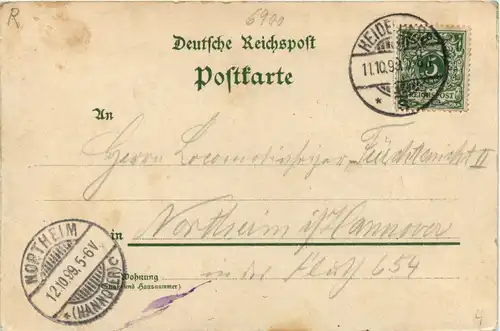 R.
6900
Deutsche Reichspost
Postkarte
HEIDEL
11.10.99
5
REICHSPOST
An
Herrn Locomotivheizer Feuchtenicht II
in Northeim i/Hannover
Wohnung
(Straße und Hausnummer)
in der Fluth 654
NORTHEIM
12.10.99. 5-6V.
*(HANNOVER)C
4